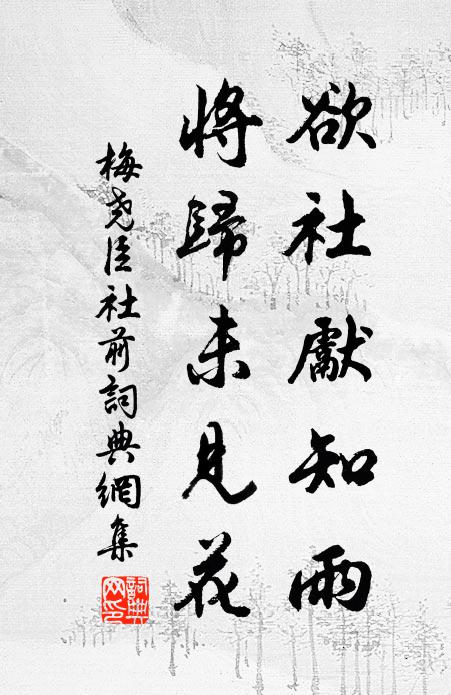 欲社獻知雨
將歸未見花
梅堯臣社前詞典網集
詞典
网印